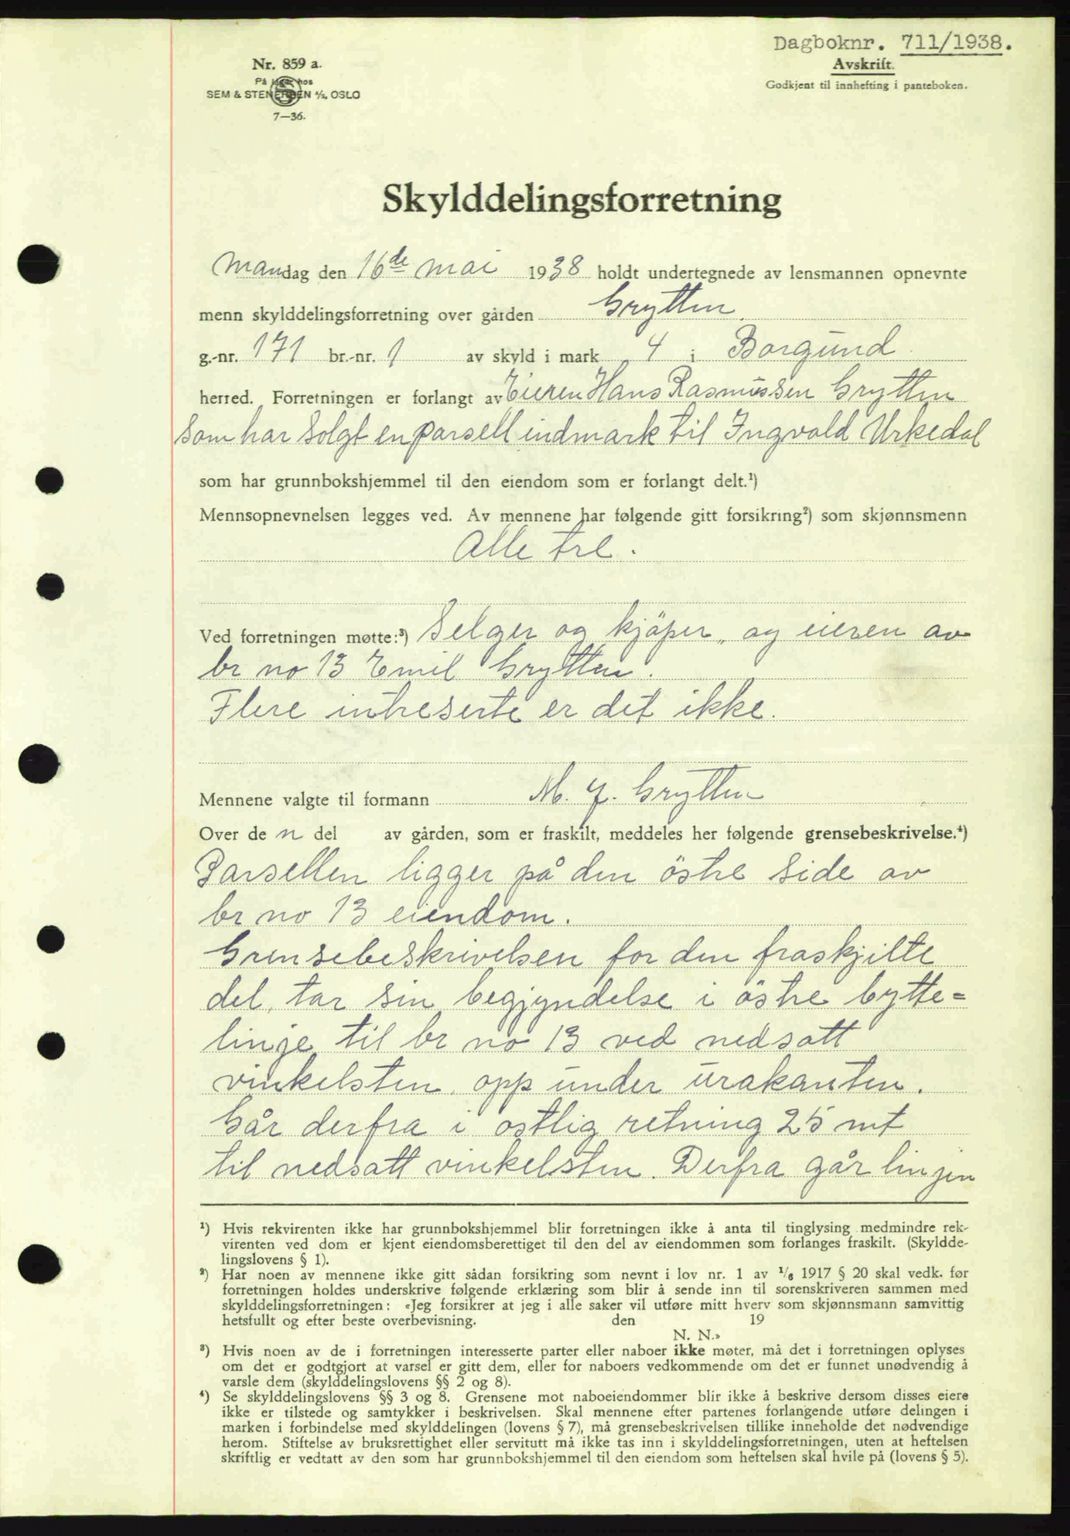 Dagboknr. 711/1938.
Avskrift.
Godkjent til innhefting i panteboken.
Nr. 859 a.
På lager hos
SEM & STENERSEN A/S, OSLO
7—36.
Skylddelingsforretning
Mandag den 16de mai 1938 holdt undertegnede av lensmannen opnevnte
menn skylddelingsforretning over gården Grytten,
g.-nr. 171 br.-nr. 1 av skyld i mark 4 i Borgund
herred. Forretningen er forlangt av Eieren Hans Rasmussen Grytten
som har solgt en parsell indmark til Ingvald Urkedal
som har grunnbokshjemmel til den eiendom som er forlangt delt.¹)
Mennsopnevnelsen legges ved. Av mennene har følgende gitt forsikring²) som skjønnsmenn
Alle tre.
Ved forretningen møtte:³) Selger og kjöper, og eieren av
br no 13 Emil Grytten.
Flere intreserte er det ikke.
Mennene valgte til formann M. J. Grytten
Over den del av gården, som er fraskilt, meddeles her følgende grensebeskrivelse.⁴)
Parsellen ligger på den östre side av
br no 13 eiendom.
Grensebeskrivelsen for den fraskjilte
del, tar sin begjyndelse i östre bytte=
linje til br no 13 ved nedsatt
vinkelsten opp under urakanten.
Går derfra i ostlig retning 25 mt
til nedsatt vinkelsten. Derfra går linjen
¹) Hvis rekvirenten ikke har grunnbokshjemmel blir forretningen ikke å anta til tinglysing medmindre rek-
virenten ved dom er kjent eiendomsberettiget til den del av eiendommen som forlanges fraskilt. (Skyldde-
lingslovens § 1).
²) Har noen av mennene ikke gitt sådan forsikring som nevnt i lov nr. 1 av 1/6 1917 § 20 skal vedk. før
forretningen holdes underskrive følgende erklæring som blir å sende inn til sorenskriveren sammen med
skylddelingsforretningen: «Jeg forsikrer at jeg i alle saker vil utføre mitt hverv som skjønnsmann samvittig
hetsfullt og efter beste overbevisning. den 19
N. N.»
³) Hvis noen av de i forretningen interesserte parter eller naboer ikke møter, må det i forretningen oplyses
om det er godtgjort at varsel er gitt dem, eller for naboers vedkommende om det er funnet unødvendig å
varsle dem (skylddelingslovens §§ 2 og 8).
⁴) Se skylddelingslovens §§ 3 og 8. Grensene mot naboeiendommer blir ikke å beskrive dersom disses eiere
ikke er tilstede og samtykker i beskrivelsen. Skal mennene efter partenes forlangende utføre delingen i
marken i forbindelse med skylddelingen (lovens § 7), må grensebeskrivelsen tillike inneholde det nødvendige
herom. Stiftelse av bruksrettighet eller servitutt må ikke tas inn i skylddelingsforretningen, uten at heftelsen
skriftlig er vedtatt av den som har grunnbokshjemmel til den eiendom som heftelsen skal hvile på (lovens § 5).